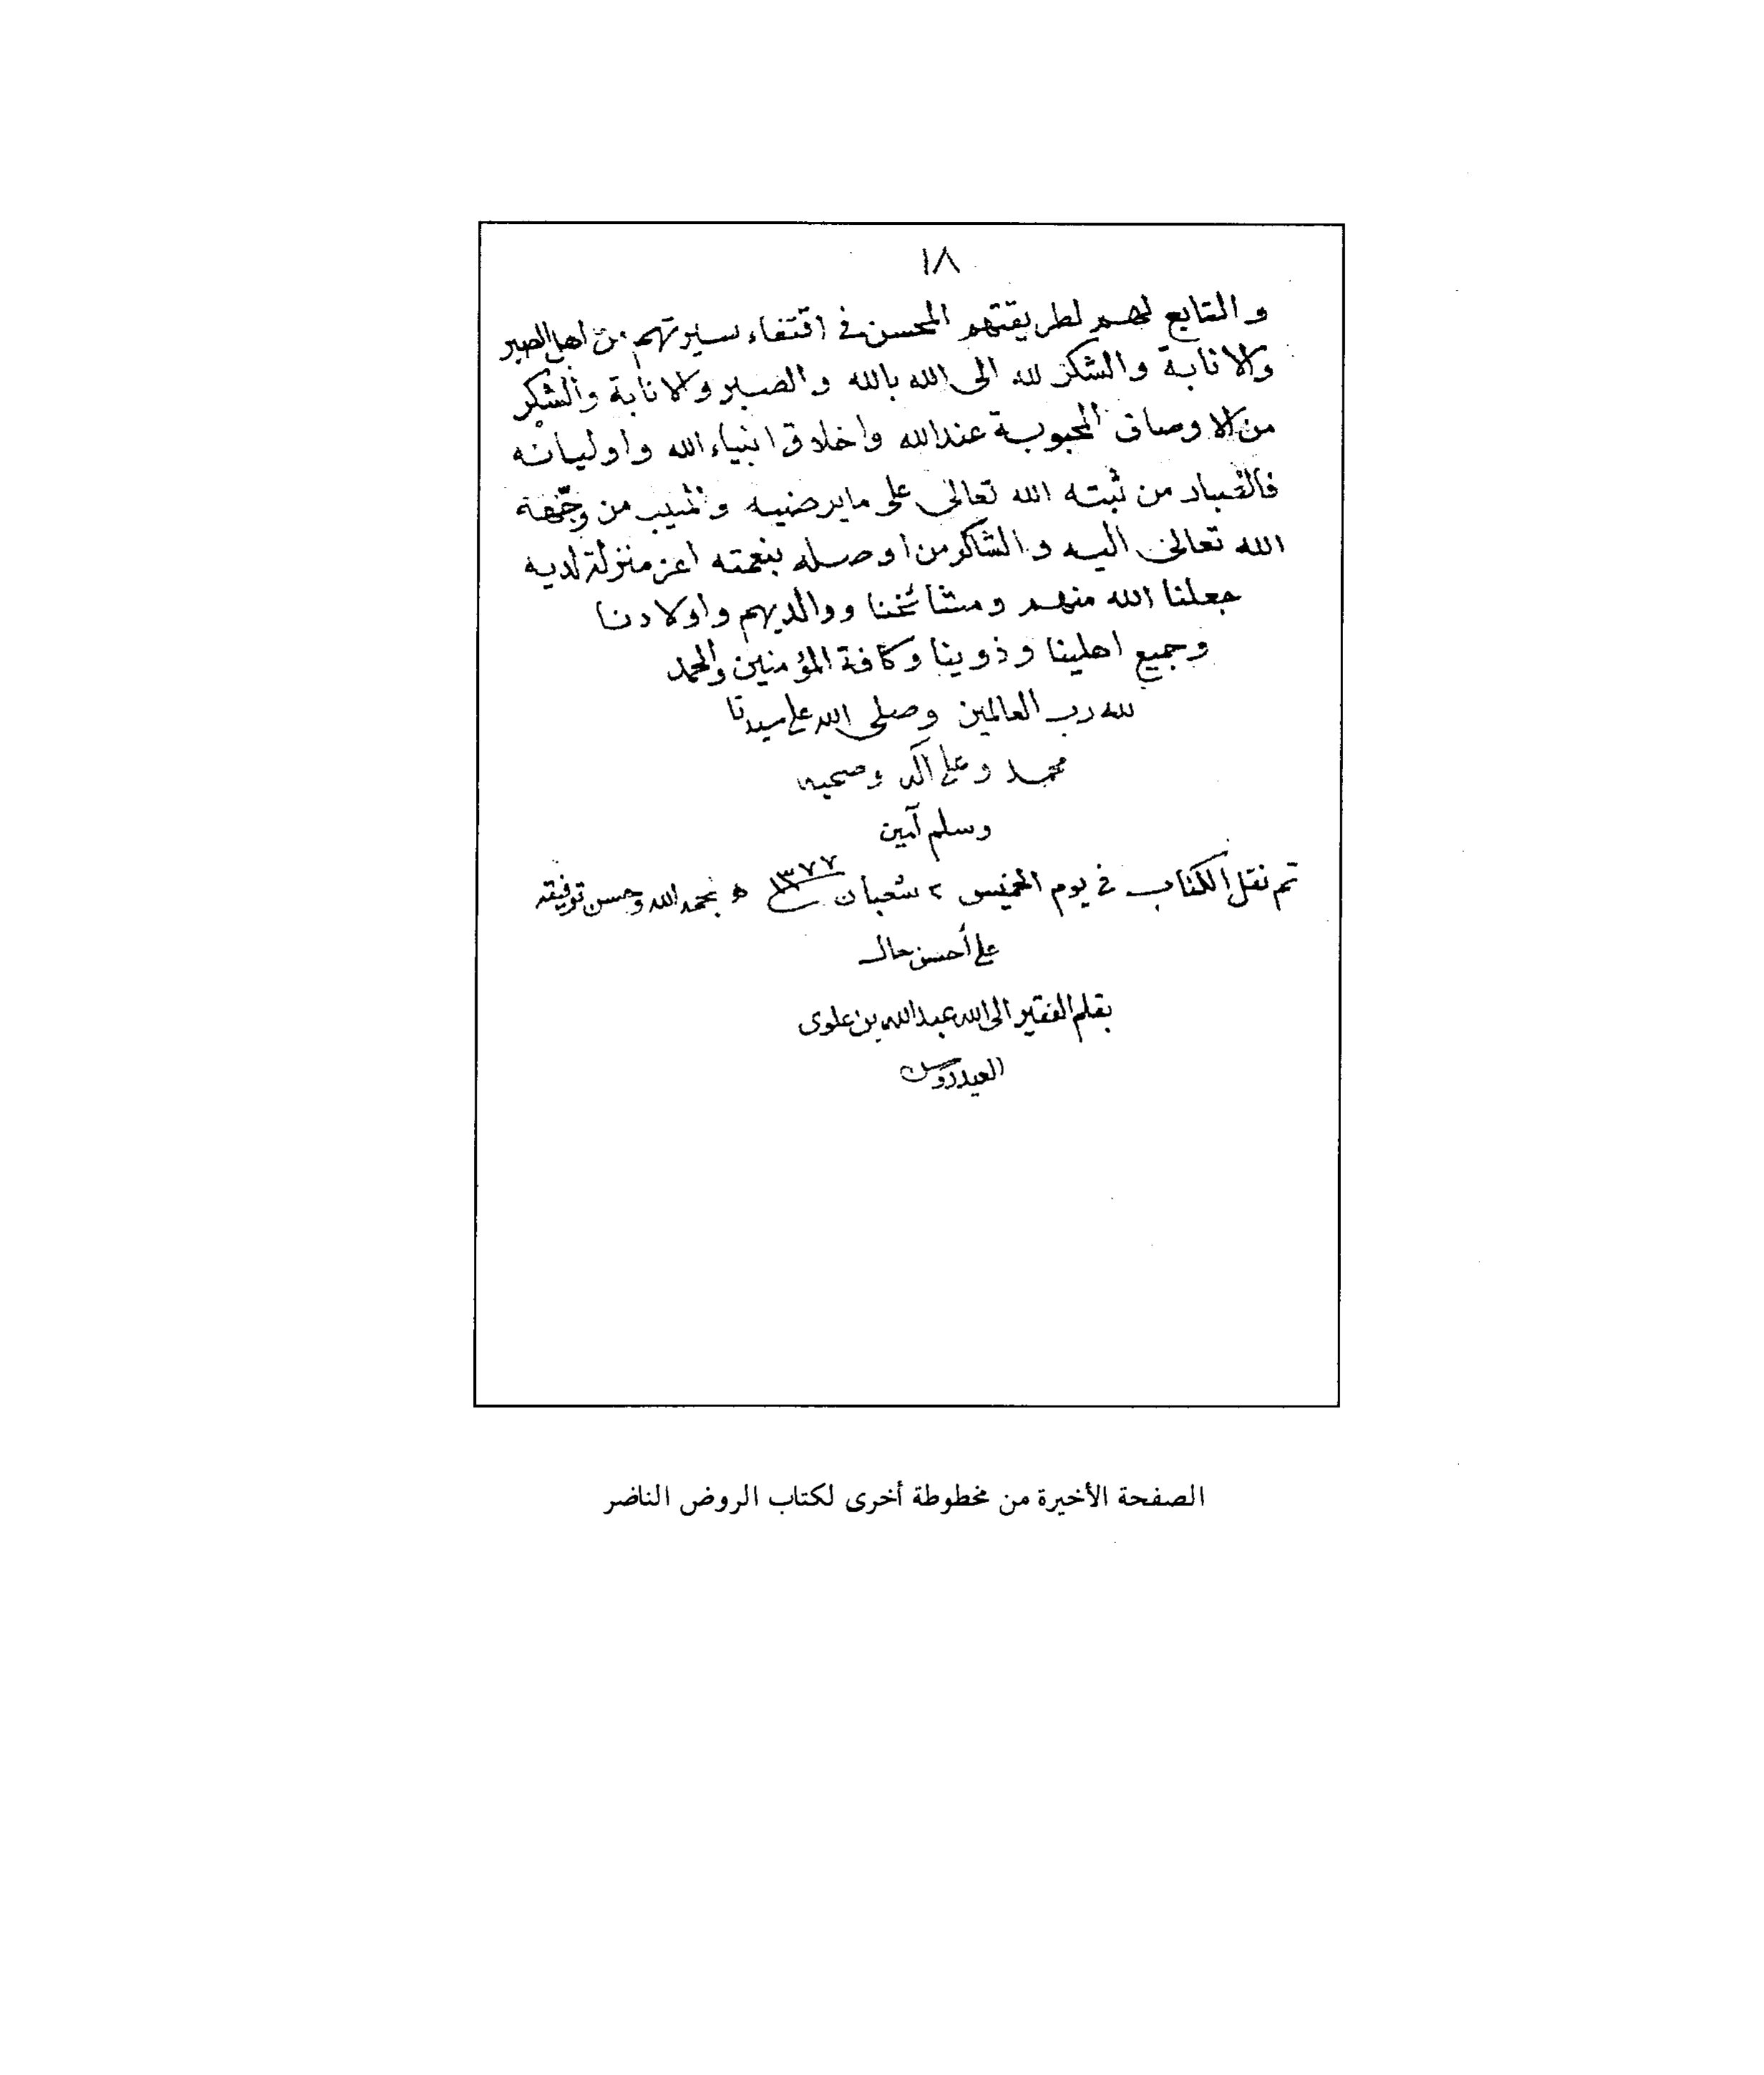 ١٨
والتابع لهم لطريقتهم المحسن في اقتفاء سيرتهم من اهل الصبر
والانابة والشكر لله الى الله بالله والصبر والانابة والشكر
من الاوصاف المحبوبة عند الله واخلاق انبياء الله واوليائه
فالصبار من ثبته الله تعالى على ما يرضيه والمنيب من وجّهه
الله تعالى اليه والشاكر من اوصله بنعمته اعز منزلة لديه
جعلنا الله منهم ومشائخنا ووالديهم واولادنا
وجميع اهلينا وذوينا وكافة المؤمنين والحمد
لله رب العالمين وصلى الله على سيدنا
محمد وعلى آله وصحبه
وسلم آمين
تم نقل الكتاب في يوم الخميس ٢ شعبان ١٣٧٧ ه بحمد الله وحسن توفيقه
على أحسن حال
بقلم الفقير الى الله عبدالله بن علوى
العيدروس
الصفحة الأخيرة من مخطوطة أخرى لكتاب الروض الناضر